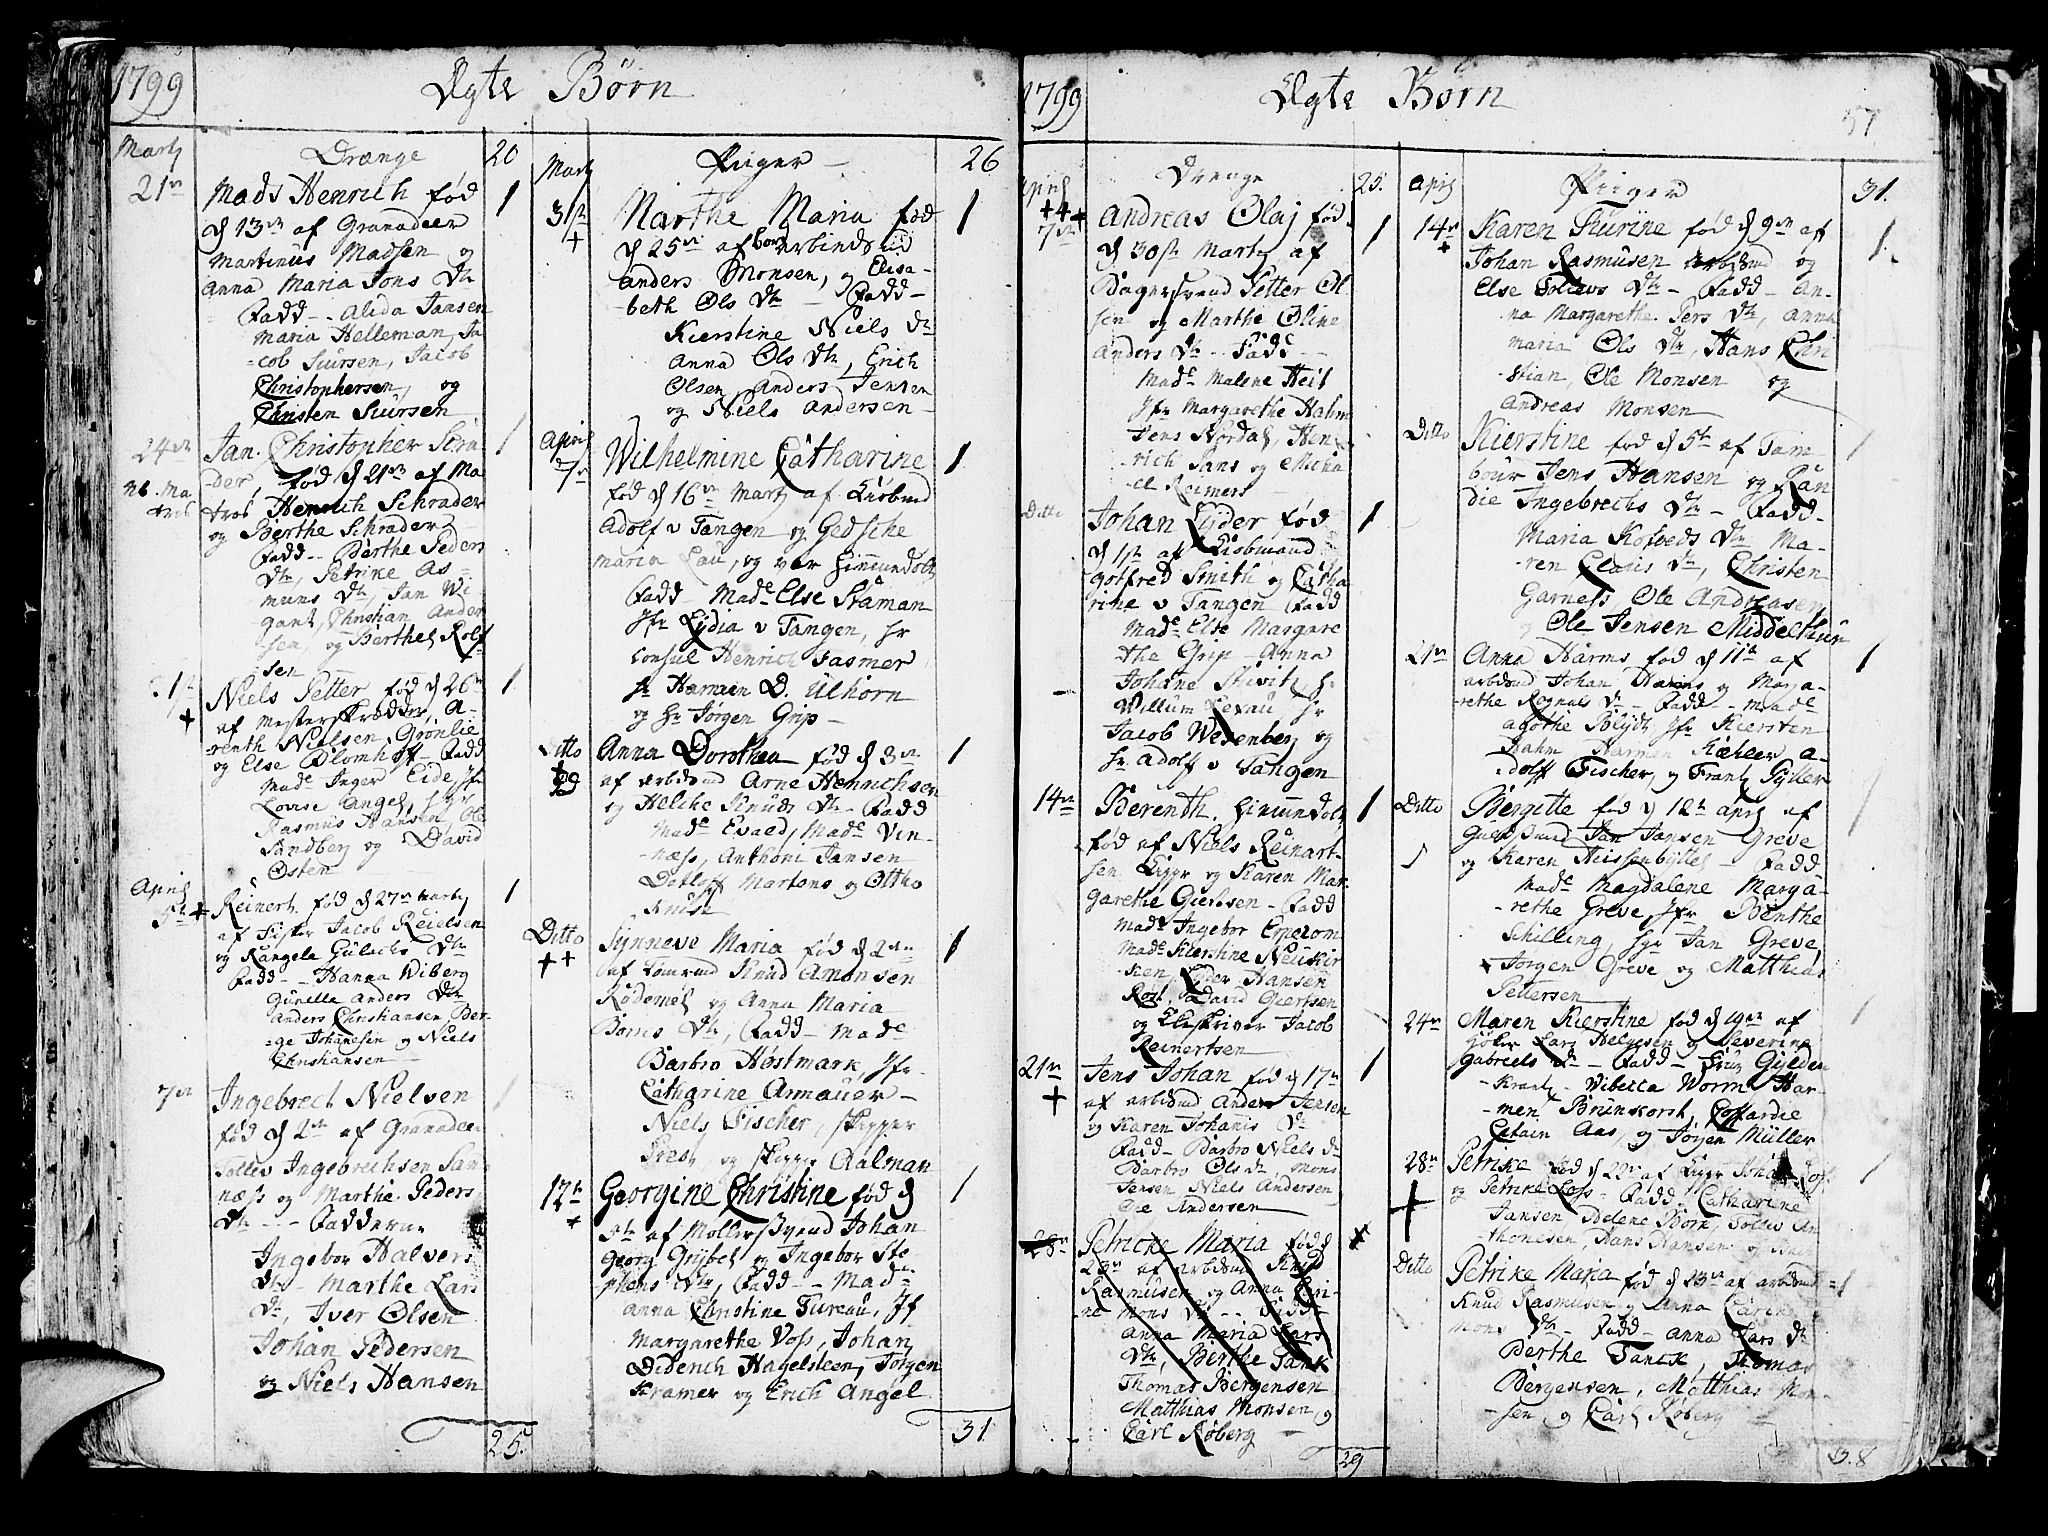 1799
Ægte Børn
Marty
Drænge
20
21de
Mads Henrich fød
1
d 13de af Granadeer
Martinus Madsen og
Anna Maria Jons Dtr
Fadd - Alida Jansen
Maria Helleman, Ja
-cob Siursen, Jacob
Christophersen, og
Christen Siursen
24de
Jan Christopher Schra
1
-der, fød d 21de af Ma
NB. Ma
tros
tros Henrich Schrader
og Berthe Schrader
Fadd - Berthe Peders
Dtr, Petrike As-
muns Dtr, Jan Wi-
gant, Christian Ander
sen, og Berthel Rolf
sen
1ste
+
Niels Petter fød d 26de
1
af Mester Skrædder, A-
-renth Nielsen Grønlie
og Else Blomhoff - Fadd
Made Inger Eide, Jfr
Lovise Angel, Hr
Rasmus Hansen, Ole
Sandberg og David
Østen
April
5te +
Reinert fød d 27de Marty
1
af Fisker Jacob Reielsen
og Rangele Gulachs Dtr
Fadd - Hanna Wiberg
Gunille Anders Dtr
Anders Christiansen Ber-
-ge Johannesen og Niels
Christiansen
7de
Ingebrect Nielsen
1
fød d 2de af Granadeer
Tollev Ingebrechsen San
næss og Marthe Peders
Dtr - Fadderne
Ingebor Halvers
Dtr - Marthe Lars
Dtr, Iver Olsen
Johan Pedersen
og Niels Hansen
25.
Marty
Piiger
26
31te
+
Marthe Maria fød
1
d 25de af Borgerbindsvid
Anders Monsen, og Elisa-
beth Ols Dtr - Fadd -
Kierstine Niels Dtr
Anna Ols Dtr, Erich
Olsen, Anders Jensen
og Niels Andersen
April
7de
Wilhelmine Catharine
1
fød d 16de Marty af Kiøbmd
Adolf v Tangen og Gedsche
Maria Lau, og var hiemmedøbt
Fadd - Made Else Straman
Jfr Lydia v Tangen, Hr
Consul Henrich Fasmer
Hr Harmen D. Ulhorn
og Hr Jørgen Grip -
Ditto
+
Anna Dorothea fød d 3de
1
af Arbdsmd Arne Henrichsen
og Helche Knuds Dtr - Fadd
Made Evald, Made Vin-
-næss, Anthoni Jansen
Detloff Martens og Ottho
Knust
Ditto
+ +
Synneve Maria fød d 2den
1
af Tømrmd Knud Amonsen
Rødemel og Anna Maria
Borns Dtr, Fadd - Made
Barbro Hostmark, Jfr
Catharine Armauer -
Niels Fischer, Skipper
og Skipper Aalman
12te
+
Georgine Christine fød d
1
5te af Møllersvend Johan
Georg Grybel og Ingebor Ste-
phens Dtr, Fadd - Made
Anna Christine Fureau, Jf
Margarethe Voss, Johan
Diderich Hagelsteen, Jørgen
Kramer og Erich Angel
31
1799
Ægte Børn
57
April
Drenge
25.
+4+
7de
Andreas Olaj fød
1
d 30ste Marty af
Bagersvend Petter Ol
sen og Marthe Oline
Anders Dtr - Fadd -
Made Malene Heil
Jfr Margarethe Hahm
Jens Nordal, Hen
rich Jans og Micha
el Reimers
Ditto
Johan Lyder fød
1
d 1ste af Kiøbmand
Gotfred Smith og Catha
rine v Tangen Fadd
Made Else Margare
the Grip - Anna
Johane Hr
Willum Lexau Hr
Jacob Wesenberg og
Hr Adolf v Tangen
14de
Berenth. hiemmedøbt
1
fød af Niels Reinart-
sen Ligger og Karen Mar-
garethe Giertsen - Fadd
Made Ingebor
Made Kierstine Neukir
-ken, Lyder Hansen
David Giertsen
og Klokriver Jacob
Reinertsen
21de
+
Jens Johan fød d 17de
1
af Arbdsmd Anders Jensen
og Karen Johanis Dtr
Fadd - Barbro Niels Dtr
Barbro Ols Dtr, Mons
Jensen Niels Andersen
Ole Andersen
28de
Petricke Maria fød d
23de af Arbdsmd Knud
Rasmusen og Anna Cari-
ne Mons Dtr - Fadd -
Anna Maria Lars
Dtr, Berthe Tanck
Thomas Bergensen
Matthias Monsen, og
Carl Røberg
29
April
Piiger
31.
14de
+
Karen Kiurine fød d 9de af
1.
Johan Rasmusen Arbdsmd og
Else Tollevs Dtr - Fadd - An-
na Margarethe Pers Dtr, Anna
Maria Ols Dtr, Hans Chri
-stian, Ole Monsen og
Andreas Monsen
Ditto
Kierstine fød d 5te af Tam-
1
bour Jens Hansen og Ran
die Ingebrechs Dtr - Fadd -
Maria Kofoeds Dtr Ma-
-ren Claus Dtr, Christen
Garness, Ole Andreasen
Ole Jensen Middelthun
21de
Anna Harms fød d 11te af
1
Arbdsmd Johan Harms og Marja-
-rethe Rognals Dtr - Fadd - Made
Agothe Blydt Jfr Kiersten
Hahm Harmen Kæhler A-
-dolff Fischer, og Frantz Pytter
Ditto
Bergitte fød d 12te April af
1
Jan Jansen Greve
og Karen Fadd
Made Magdalene Marga-
-rethe Greve, Jfr Benthe
Schilling, Hr Jan Greve
Jørgen Greve og Matthias
Pettersen
24de
Maren Kierstine fød d 19de af
1
Lars Helgesen og Severine
Gabriels Dtr - Fadd - Frue Gylden
-krantz - Wibecka Worm Har-
-men Brunkorst, Coffardie
Captain Aas, og Jørgen Müller
28de
+
Petrike fød d 22de af Ligger Johan
1
og Petrike Less - Fadd - Catharine
Jansen, Helene Bork, Tollev An
thonesen, Hans Hansen og
Ditto
Petrike Maria fød d 23de af Arbdsmd
1
Knud Rasmusen og Anna Carine
Mons Dtr - Fadd - Anna Lars Dtr
Berthe Tanck, Thomas
Bergensen, Matthias Mon-
-sen, og Carl Røberg
38